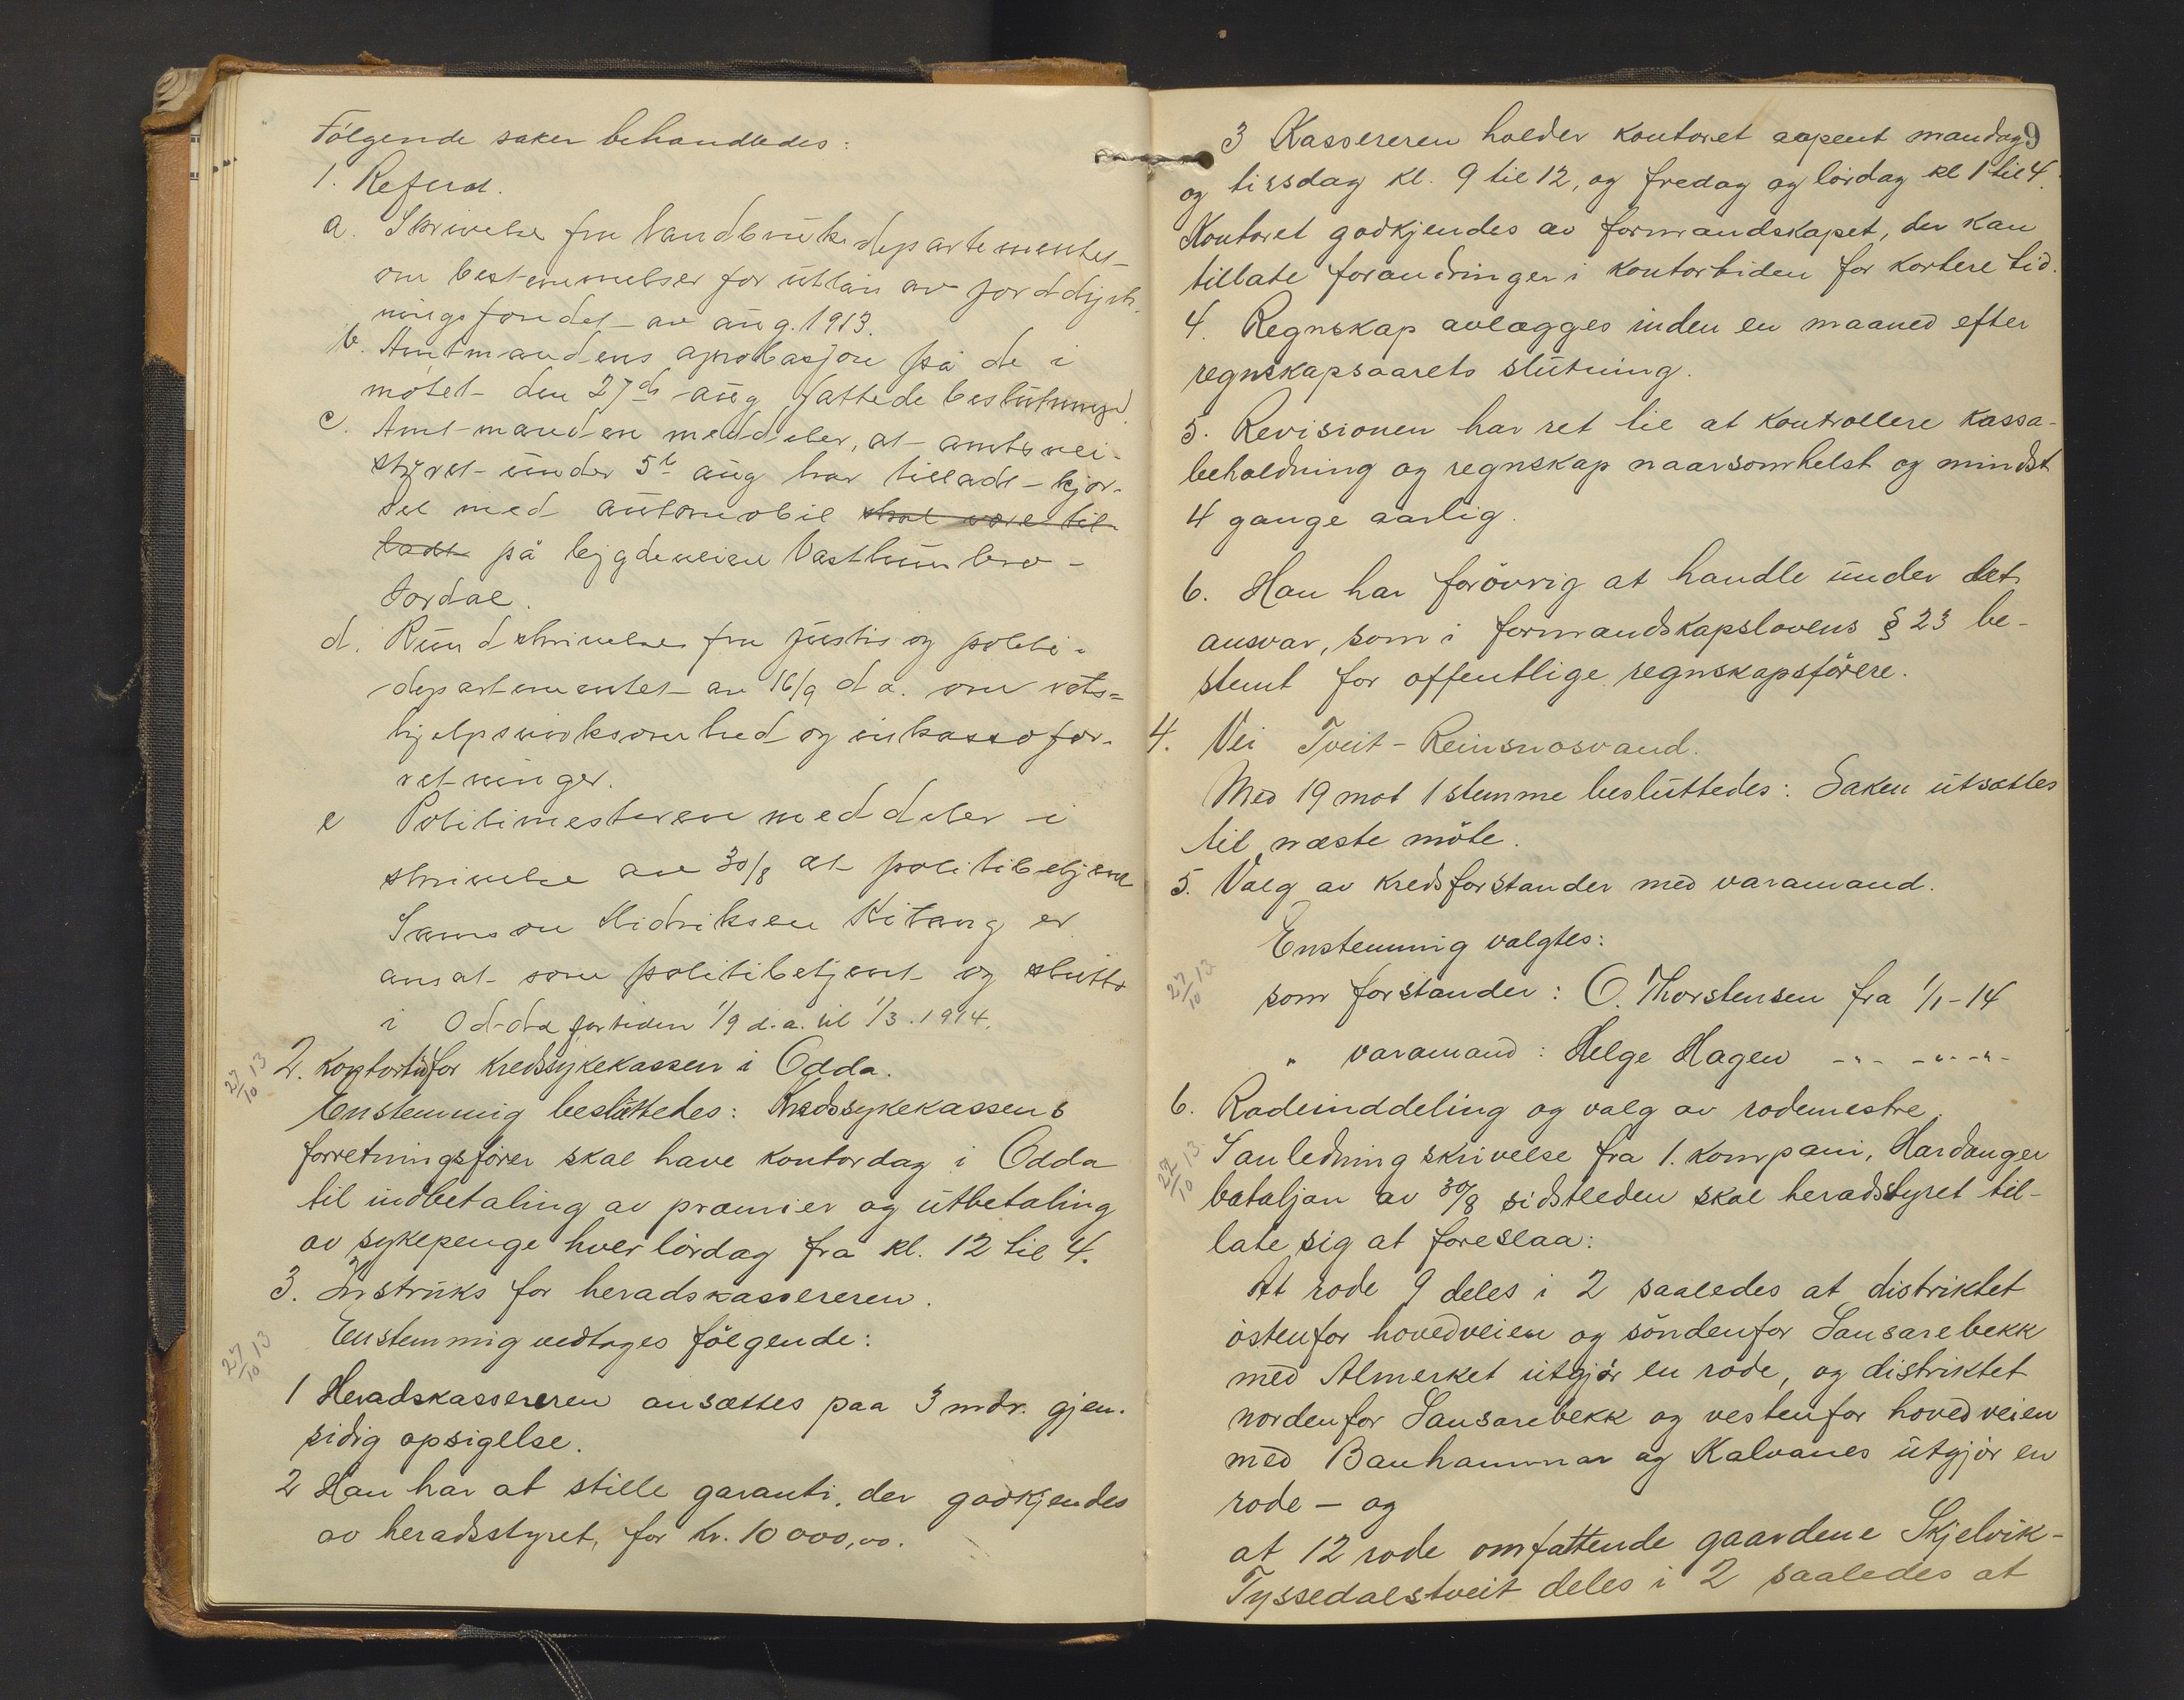 Følgende saker behandledes:
1. Referat.
a. Skrivelse fra landbruksdepartementet
om bestemmelser for utlån av jorddyrk-
ningsfondet av aug. 1913.
b. Amtmandens aprobasjon på de i
møtet den 27de aug fattede beslutninger.
c. Amtmanden meddeler, at amtsvei-
styret under 5te aug har tilladt kjør-
sel med automobil skal være til-
ladt på bygdeveien Vasthun bro -
Jordal.
d. Rundskrivelse fra justis og politi-
departementet av 16/9 d.a. om rets-
hjelpsvirksomhed og inkassofor-
retninger.
e Politimesteren meddeler i
skrivelse av 30/8 at politibetjent
Samson Hidriksen Kitang er
ansat som politibetjent og skutto
i Odda for tiden 1/9 d.a. til 1/3. 1914.
27/10 13
2. Kontortid for Kredssykekassen i Odda.
Enstemmig besluttedes: Kredssykekassens
forretningsfører skal have kontordag i Odda
til indbetaling av præmier og utbetaling
av sykepenge hver lørdag fra kl. 12 til 4.
3. Instruks for heradskassereren.
27/10 13
Enstemmig vedtages følgende:
1 Heradskassereren ansættes paa 3 mdr. gjen-
sidig opsigelse.
2 Han har at stille garanti, der godkjendes
av heradsstyret, for kr. 10 000,00.
9
3 Kassereren holder kontoret aapent mandag
og tirsdag kl. 9 til 12, og fredag og lørdag kl 1 til 4.
Kontoret godkjendes av formandskapet, der kan
tillate forandringer i kontortiden for kortere tid.
4. Regnskap avlægges inden en maaned efter
regnskapsaarets slutning.
5. Revisionen har ret til at kontrollere kassa-
beholdning og regnskap naarsomhelst og mindst
4 gange aarlig.
6. Han har forøvrig at handle under det
ansvar, som i formandskapslovens § 23 be-
stemt for offentlige regnskapsførere.
4. Vei Tveit - Reinsnosvand.
Med 19 mot 1 stemme besluttedes: Saken utsættes
til næste møte.
5. Valg av kredsforstander med varamand.
Enstemmig valgtes:
27/10 13
som forstander: O. Thorstensen fra 1/1-14
" varamand: Helge Hagen -"- -"-"-
6. Rodeinddeling og valg av rodemestre.
27/10 13.
I anledning skrivelse fra 1. kompani, Hardanger
bataljon av 30/8 sidstleden skal heradsstyret til-
late sig at foreslaa:
At rode 9 deles i 2 saaledes at distriktet
østenfor hovedveien og søndenfor Sansarebekk
med Almerket utgjør en rode, og distriktet
nordenfor Sansarebekk og vestenfor hovedveien
med Banhammar og Kalvanes utgjør en
rode - og
at 12 rode omfattende gaardene Skjelvik-
Tyssedalstveit deles i 2 saaledes at